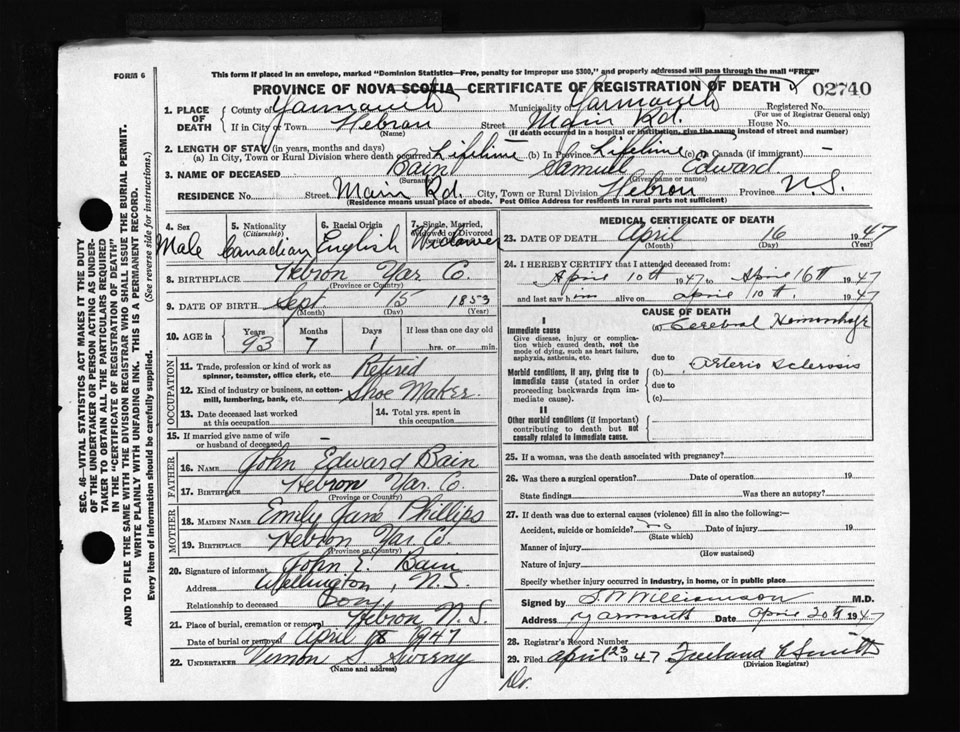 FORM 6
This form if placed in an envelope, marked "Dominion Statistics—Free, penalty for improper use $300," and properly addressed will pass through the mail "FREE"
PROVINCE OF NOVA SCOTIA—CERTIFICATE OF REGISTRATION OF DEATH
02740
1. PLACE OF DEATH
County of Yarmouth Municipality of Yarmouth Registered No.
(For use of Registrar General only)
If in City or Town Hebron Street Main Rd. House No.
(Name) (If death occurred in a hospital or institution, give the name instead of street and number)
2. LENGTH OF STAY (in years, months and days)
(a) In City, Town or Rural Division where death occurred Lifetime (b) In Province Lifetime (c) In Canada (if immigrant) -
3. NAME OF DECEASED Bain Samuel Edward.
(Surname) (Given name or names)
RESIDENCE No. Street Main Rd. City, Town or Rural Division Hebron Province N.S.
(Residence means usual place of abode. Post Office Address for residents in rural parts not sufficient)
4. Sex
Male
5. Nationality
(Citizenship)
Canadian
6. Racial Origin
English
7. Single, Married, Widowed or Divorced
Widower
8. BIRTHPLACE Hebron Yar. Co.
(Province or Country)
9. DATE OF BIRTH Sept 15 1853
(Month) (Day) (Year)
10. AGE in
Years Months Days If less than one day old
93 7 1 hrs. or min.
OCCUPATION
11. Trade, profession or kind of work as spinner, teamster, office clerk, etc. Retired
12. Kind of industry or business, as cotton-mill, lumbering, bank, etc. Shoe Maker.
13. Date deceased last worked at this occupation
14. Total yrs. spent in this occupation
15. If married give name of wife or husband of deceased -
FATHER
16. NAME John Edward Bain
17. BIRTHPLACE Hebron Yar. Co.
(Province or Country)
MOTHER
18. MAIDEN NAME Emily Jane Phillips
19. BIRTHPLACE Hebron Yar Co.
(Province or Country)
20. Signature of informant John E. Bain
Address Wellington, N.S.
Relationship to deceased Son
21. Place of burial, cremation or removal Hebron N.S.
Date of burial or removal April 18 1947
22. UNDERTAKER Vernon S. Sweeny
(Name and address)
MEDICAL CERTIFICATE OF DEATH
23. DATE OF DEATH April 16 1947
(Month) (Day) (Year)
24. I HEREBY CERTIFY that I attended deceased from:
April 10th 1947 to April 16th 1947
and last saw him alive on April 10th. 1947
CAUSE OF DEATH
I
Immediate cause
Give disease, injury or complication which caused death, not the mode of dying, such as heart failure, asphyxia, asthenia, etc.
(a) Cerebral Hemorrhage
due to
Morbid conditions, if any, giving rise to immediate cause (stated in order proceeding backwards from immediate cause).
(b) Arterio Sclerosis
due to
(c)
II
Other morbid conditions (if important) contributing to death but not causally related to immediate cause.
25. If a woman, was the death associated with pregnancy?
26. Was there a surgical operation? Date of operation 19
State findings Was there an autopsy?
27. If death was due to external causes (violence) fill in also the following:—
Accident, suicide or homicide? no Date of injury 19
(State which)
Manner of injury
(How sustained)
Nature of injury
Specify whether injury occurred in industry, in home, or in public place
Signed by S. W. Williamson M.D.
Address Yarmouth Date April 20th 1947
28. Registrar's Record Number
29. Filed April 23 1947 Freeland Smith
(Division Registrar)
SEC. 46—VITAL STATISTICS ACT MAKES IT THE DUTY
OF THE UNDERTAKER OR PERSON ACTING AS UNDERTAKER TO OBTAIN ALL THE PARTICULARS REQUIRED
IN THE "CERTIFICATE OF REGISTRATION OF DEATH"
AND TO FILE THE SAME WITH THE DIVISION REGISTRAR WHO SHALL ISSUE THE BURIAL PERMIT.
WRITE PLAINLY WITH UNFADING INK. THIS IS A PERMANENT RECORD.
Every item of information should be carefully supplied. (See reverse side for instructions.)